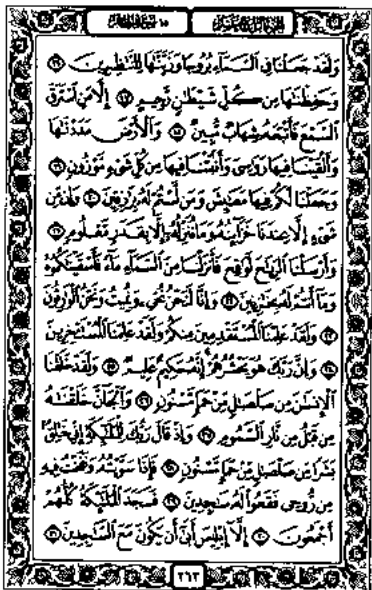 وَلَقَدْ جَعَلْنَا فِي ٱلسَّمَآءِ بُرُوجًا وَزَيَّنَّٰهَا لِلنَّٰظِرِينَ ١٦
وَحَفِظْنَٰهَا مِن كُلِّ شَيْطَٰنٍ رَّجِيمٍ ١٧ إِلَّا مَنِ ٱسْتَرَقَ
ٱلسَّمْعَ فَأَتْبَعَهُۥ شِهَابٌ مُّبِينٌ ١٨ وَٱلْأَرْضَ مَدَدْنَٰهَا
وَأَلْقَيْنَا فِيهَا رَوَٰسِيَ وَأَنۢبَتْنَا فِيهَا مِن كُلِّ شَيْءٍ مَّوْزُونٍ ١٩
وَجَعَلْنَا لَكُمْ فِيهَا مَعَٰيِشَ وَمَن لَّسْتُمْ لَهُۥ بِرَٰزِقِينَ ٢٠ وَإِن مِّن
شَيْءٍ إِلَّا عِندَنَا خَزَآئِنُهُۥ وَمَا نُنَزِّلُهُۥٓ إِلَّا بِقَدَرٍ مَّعْلُومٍ ٢١
وَأَرْسَلْنَا ٱلرِّيَٰحَ لَوَٰقِحَ فَأَنزَلْنَا مِنَ ٱلسَّمَآءِ مَآءً فَأَسْقَيْنَٰكُمُوهُ
وَمَآ أَنتُمْ لَهُۥ بِخَٰزِنِينَ ٢٢ وَإِنَّا لَنَحْنُ نُحْيِۦ وَنُمِيتُ وَنَحْنُ ٱلْوَٰرِثُونَ
٢٣ وَلَقَدْ عَلِمْنَا ٱلْمُسْتَقْدِمِينَ مِنكُمْ وَلَقَدْ عَلِمْنَا ٱلْمُسْتَـْٔخِرِينَ
٢٤ وَإِنَّ رَبَّكَ هُوَ يَحْشُرُهُمْ إِنَّهُۥ حَكِيمٌ عَلِيمٌ ٢٥ وَلَقَدْ خَلَقْنَا
ٱلْإِنسَٰنَ مِن صَلْصَٰلٍ مِّنْ حَمَإٍ مَّسْنُونٍ ٢٦ وَٱلْجَآنَّ خَلَقْنَٰهُ
مِن قَبْلُ مِن نَّارِ ٱلسَّمُومِ ٢٧ وَإِذْ قَالَ رَبُّكَ لِلْمَلَٰٓئِكَةِ إِنِّي خَٰلِقٌۢ
بَشَرًا مِّن صَلْصَٰلٍ مِّنْ حَمَإٍ مَّسْنُونٍ ٢٨ فَإِذَا سَوَّيْتُهُۥ وَنَفَخْتُ فِيهِ
مِن رُّوحِي فَقَعُوا۟ لَهُۥ سَٰجِدِينَ ٢٩ فَسَجَدَ ٱلْمَلَٰٓئِكَةُ كُلُّهُمْ
أَجْمَعُونَ ٣٠ إِلَّآ إِبْلِيسَ أَبَىٰٓ أَن يَكُونَ مَعَ ٱلسَّٰجِدِينَ ٣١
٢٦٣